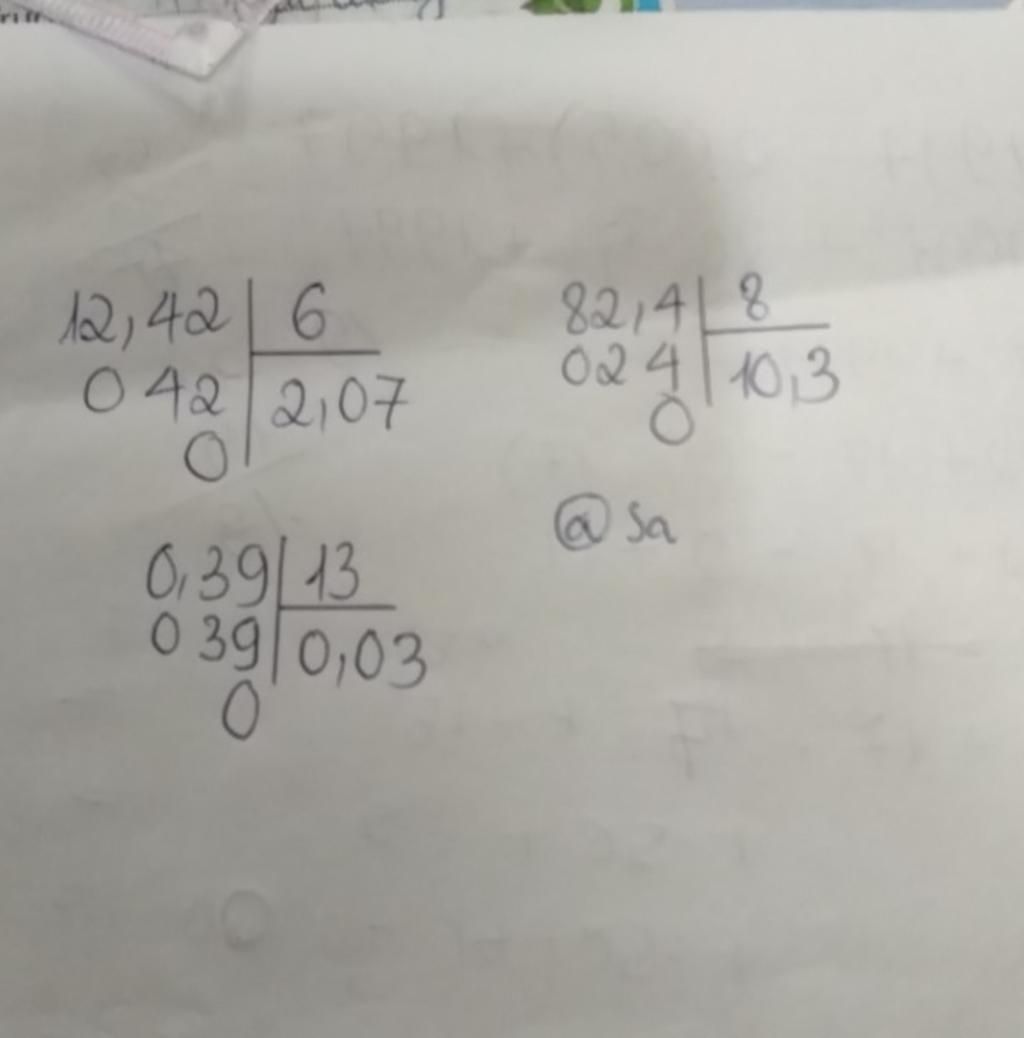 12,42 6
0 42 2,07
0
82,4 8
02 4 10,3
0
0,39 13
0 39 0,03
0
@ Sa